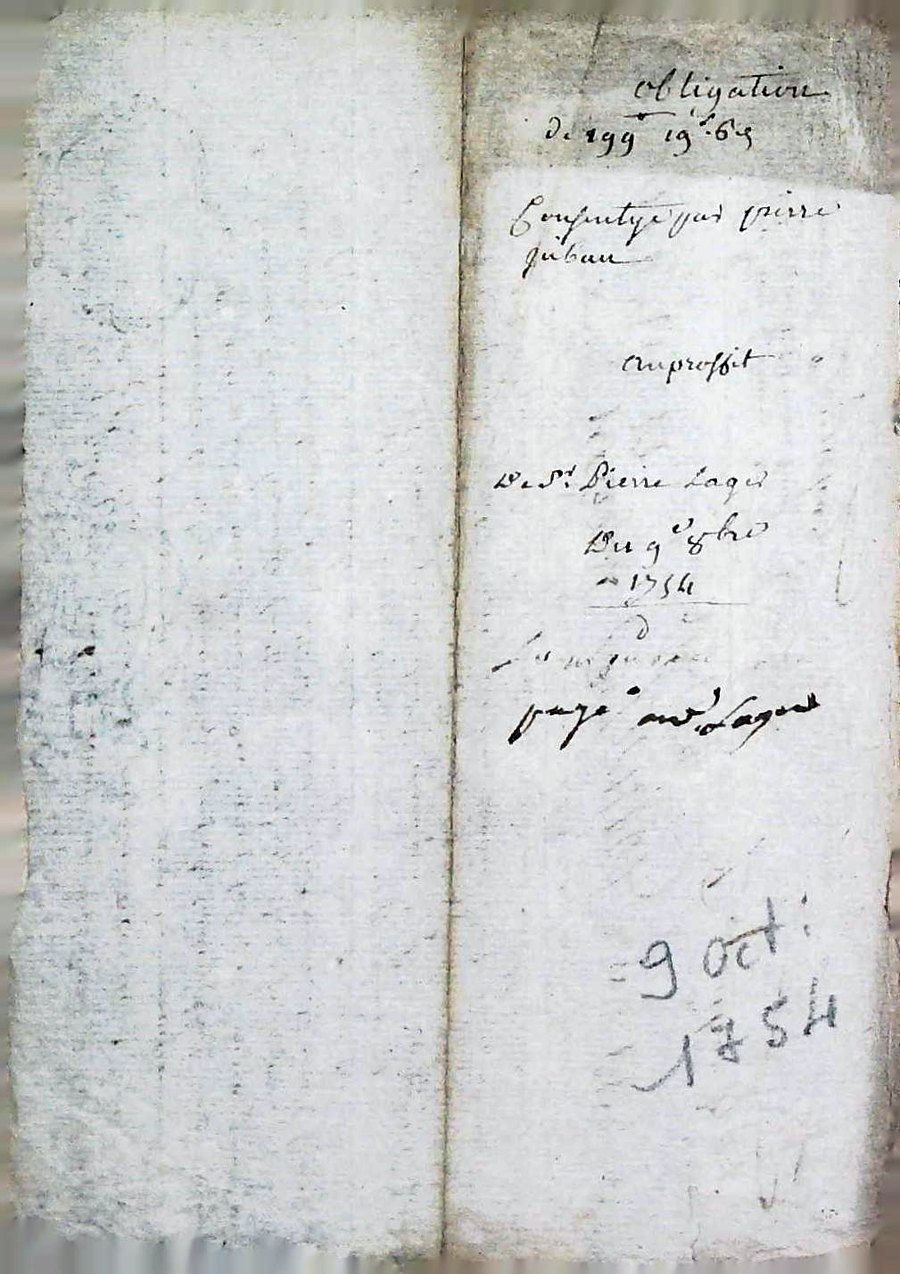 obligation
de 199# 19s 6d
Consentye par pierre
juban
au proffit
De Sr. Pierre Lager
Du 9e 8bre
1754
paye au Sr Lager
9 oct:
1754